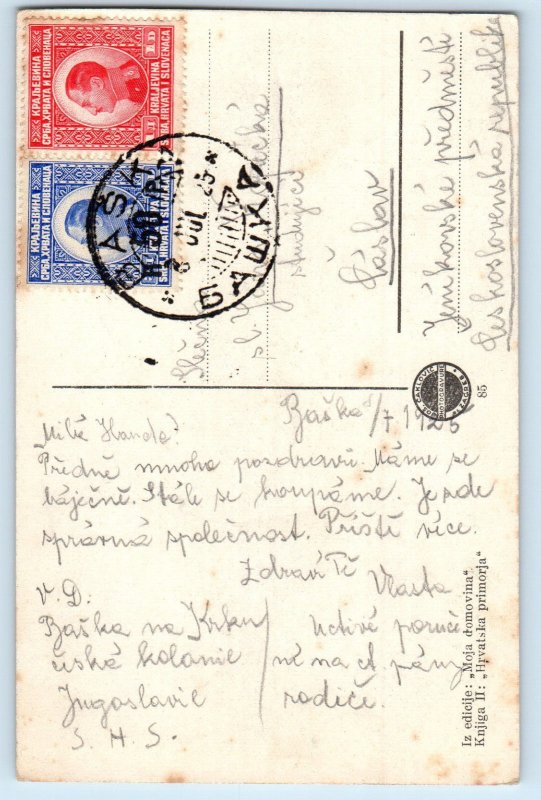 КРАЉЕВИНА
СРБА, ХРВАТА И СЛОВЕНАЦА
1 D 1
KRALJEVINA
SRBA, HRVATA I SLOVENACA
КРАЉЕВИНА
СРБА, ХРВАТА И СЛОВЕНАЦА
BAŠKA
БАШКА
Slečna
sl.
studující
Čáslav
Jeníkovské předměstí
Československá republika
85
Baška 8/7 1925
Milá Hando!
Předně mnoho pozdravů. Máme se
báječně. Stále se koupáme. Je zde
správná společnost. Příště více.
Zdraví Tě
Vlasta
V. D.
Baška na Krku
česká kolonie
Jugoslavie
S. H. S.
Uctivé poruče
ní na ct. pány
rodiče.
Iz edicije: „Moja domovina“
Knjiga II: „Hrvatska primorja“